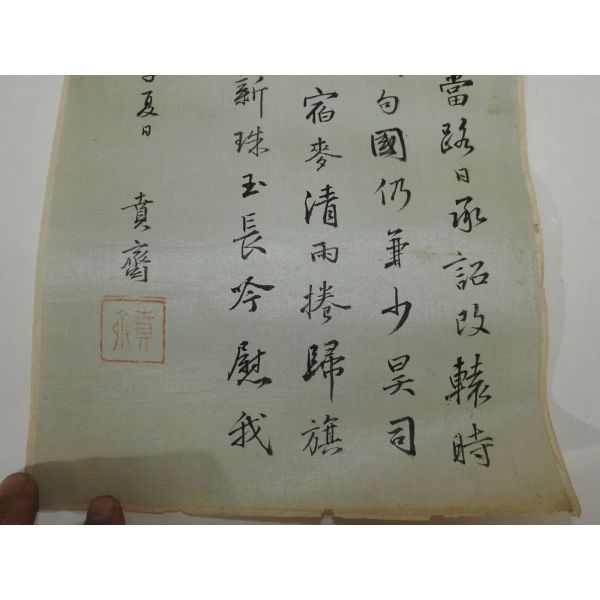 當路日承詔改轅時
句國仍兼少昊司
宿麥清雨捲歸旗
新珠玉長吟慰我
夏日
賁齋
賁